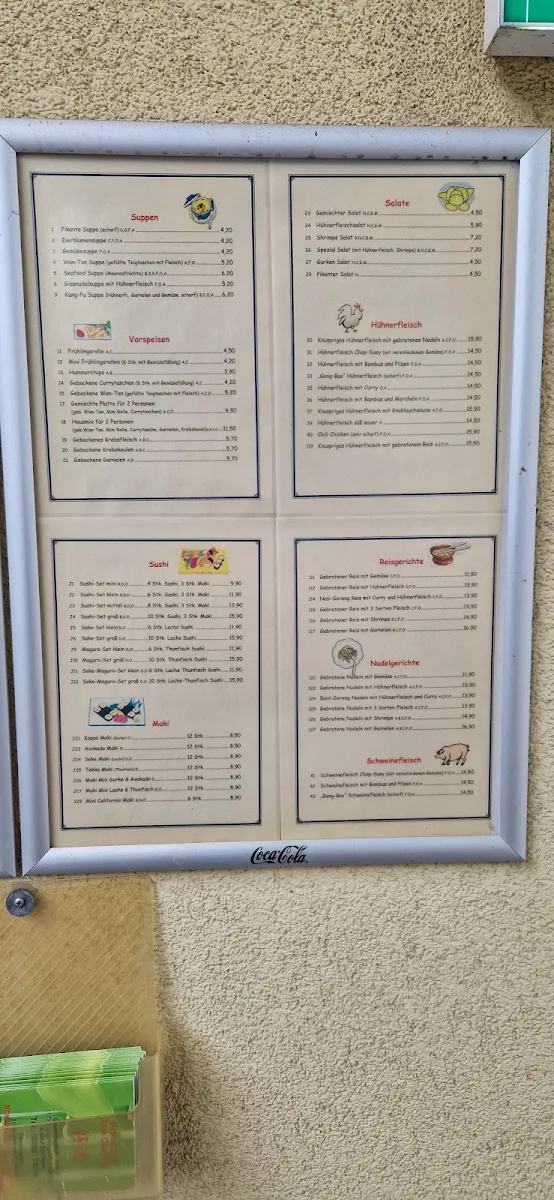 Suppen
1 Pikante Suppe (scharf) C.O.F.A 4,20
2 Eierblumensuppe C.F.O.A 4,20
3 Gemüsesuppe F.O.A 4,20
4 Wan-Tan Suppe (gefüllte Teigtaschen mit Fleisch) A.F.O 5,20
5 Seafood Suppe (Meeresfrüchte) 6,20
8 Glasnudelsuppe mit Hühnerfleisch F.O.A 5,20
9 Kung-Fu Suppe (Hühnerfl., Garnelen und Gemüse, scharf) 6,20
Vorspeisen
11 Frühlingsrolle A.C 4,50
12 Mini Frühlingsrollen (6 Stk. mit Gemüsefüllung) A.C 4,20
13 Hummerchips A.B 3,90
14 Gebackene Currytaschen (6 Stk. mit Gemüsefüllung) A.C 4,20
15 Gebackene Wan-Tan (gefüllte Teigtaschen mit Fleisch) A.C.O 5,20
17 Gemischte Platte für 2 Personen
(geb. Wan-Tan, Mini Rolle, Currytaschen) A.C.O 9,50
18 Hausmix für 2 Personen
(geb. Wan-Tan, Mini Rolle, Currytasche, Garnelen, Krebskeule) 11,50
19 Gebackenes Krebsfleisch A.B.C 5,70
20 Gebackene Krebskeulen A.B.C 5,70
21 Gebackene Garnelen A.B 5,70
Salate
23 Gemischter Salat N.C.G.M 4,50
24 Hühnerfleischsalat N.C.G.M 5,90
25 Shrimps Salat B.N.C.G.M 7,20
26 Spezial Salat (mit Hühnerfleisch, Shrimps) B.N.C.G.M 7,20
27 Gurken Salat N.C.G.M 4,50
29 Pikanter Salat N 4,50
Hühnerfleisch
30 Knuspriges Hühnerfleisch mit gebratenen Nudeln A.C.F.O 15,90
31 Hühnerfleisch Chop-Suey (mit verschiedenen Gemüse) F.O.A 14,50
32 Hühnerfleisch mit Bambus und Pilzen F.O.A 14,50
33 „Gong-Bao“ Hühnerfleisch (scharf) F.O.A 14,50
35 Hühnerfleisch mit Curry O.A 14,50
36 Hühnerfleisch mit Bambus und Morcheln F.O.A 14,50
37 Knuspriges Hühnerfleisch mit Knoblauchsauce A.F.O 15,90
39 Hühnerfleisch süß-sauer 14,50
40 Chili Chicken (sehr scharf) F.O.A 15,90
119 Knuspriges Hühnerfleisch mit gebratenem Reis A.C.F.O 15,90
Sushi
Sushi-Set mini B.D.O 4 Stk. Sushi, 3 Stk. Maki 9,90
Sushi-Set klein B.D.O 6 Stk. Sushi, 3 Stk. Maki 11,90
Sushi-Set mittel B.D.O 8 Stk. Sushi, 3 Stk. Maki 13,90
Sushi-Set groß B.D.O 10 Stk. Sushi, 3 Stk. Maki 15,90
Sake-Set klein D.O 6 Stk. Lachs Sushi 11,90
Sake-Set groß D.O 10 Stk. Lachs Sushi 15,90
Maguro-Set klein D.O 6 Stk. Thunfisch Sushi 11,90
Maguro-Set groß D.O 10 Stk. Thunfisch Sushi 15,90
Sake-Maguro-Set klein D.O 6 Stk. Lachs-Thunfisch Sushi 11,90
Sake-Maguro-Set groß D.O 10 Stk. Lachs-Thunfisch Sushi 15,90
Maki
Kappa Maki (Gurke) O 12 Stk. 8,50
Avokado Maki O 12 Stk. 8,50
Sake Maki (Lachs) D.O 12 Stk. 8,90
Tekka Maki (Thunfisch) 12 Stk. 8,90
Maki Mix Gurke & Avokado O 12 Stk. 8,90
Maki Mix Lachs & Thunfisch D.O 12 Stk. 8,90
Mini California Maki 6 Stk. 8,90
Reisgerichte
111 Gebratener Reis mit Gemüse C.F.O 11,90
112 Gebratener Reis mit Hühnerfleisch C.F.O 13,90
114 Nasi-Goreng Reis mit Curry und Hühnerfleisch C.F.O 13,90
115 Gebratener Reis mit 3 Sorten Fleisch C.F.O 13,90
116 Gebratener Reis mit Shrimps 14,90
117 Gebratener Reis mit Garnelen 16,90
Nudelgerichte
121 Gebratene Nudeln mit Gemüse A.C.F.O 11,90
122 Gebratene Nudeln mit Hühnerfleisch A.C.F.O 13,90
124 Bami-Goreng Nudeln mit Hühnerfleisch und Curry A.C.F.O 13,90
125 Gebratene Nudeln mit 3 Sorten Fleisch A.C.F.O 13,90
126 Gebratene Nudeln mit Shrimps A.B.C.F.O 14,90
127 Gebratene Nudeln mit Garnelen A.B.C.F.O 16,90
Schweinefleisch
41 Schweinefleisch Chop-Suey (mit verschiedenen Gemüse) F.O.A 14,50
42 Schweinefleisch mit Bambus und Pilzen F.O.A 14,50
43 „Gong-Bao“ Schweinefleisch (scharf) F.O.A 14,50
Coca-Cola